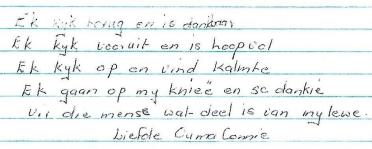 Ek kyk terug en is dankbaar
Ek kyk vooruit en is hoopvol
Ek kyk op en vind kalmte
Ek gaan op my knieë en sê dankie
vir die mense wat deel is van my lewe.
Liefde Ouma Connie